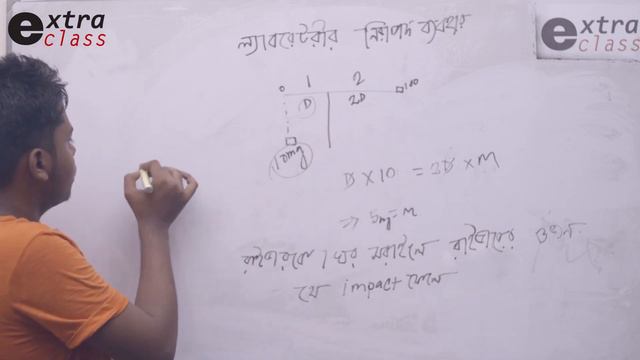 extra
class
extra
class
ল্যাবরেটরীর নিরাপদ ব্যবহার
0 1 2 100
D 2D
10mg
D X 10 = 2D X M
=> 5mg = M
রাইডারকে 1 ঘর সরাইলে রাইডারের ওজন
যে impact ফেলে